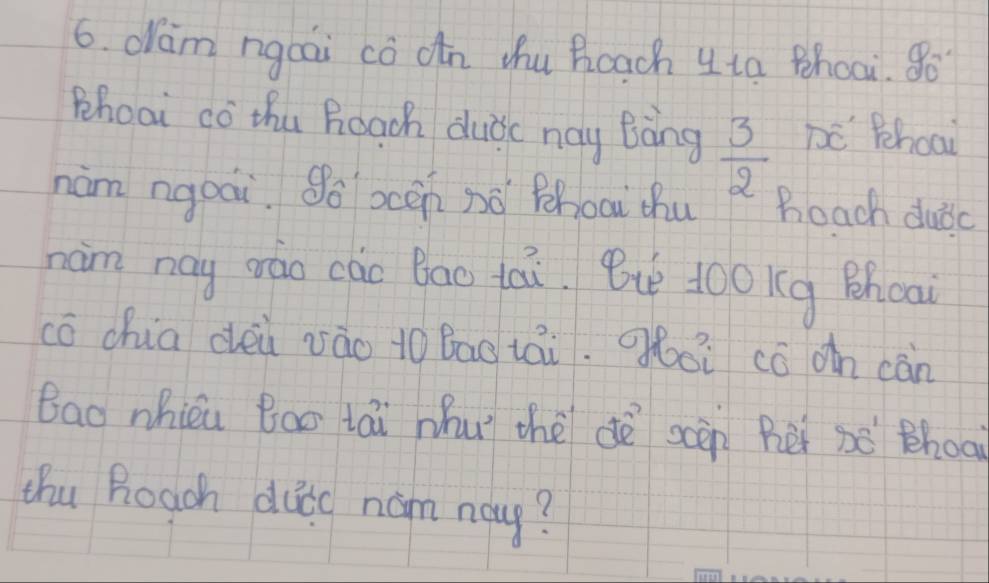 6. Năm ngoái cô Ơn thu hoạch 4 tạ khoai. Số
khoai cô thu hoạch được nay bằng 3/2 số khoai
năm ngoái. Cô xếp số khoai thu hoạch được
năm nay vào các bao tải. Cứ 100 kg khoai
cô chia đều vào 10 bao tải. Hỏi cô Ơn cần
bao nhiêu bao tải như thế để xếp hết số khoai
thu hoạch được năm nay?